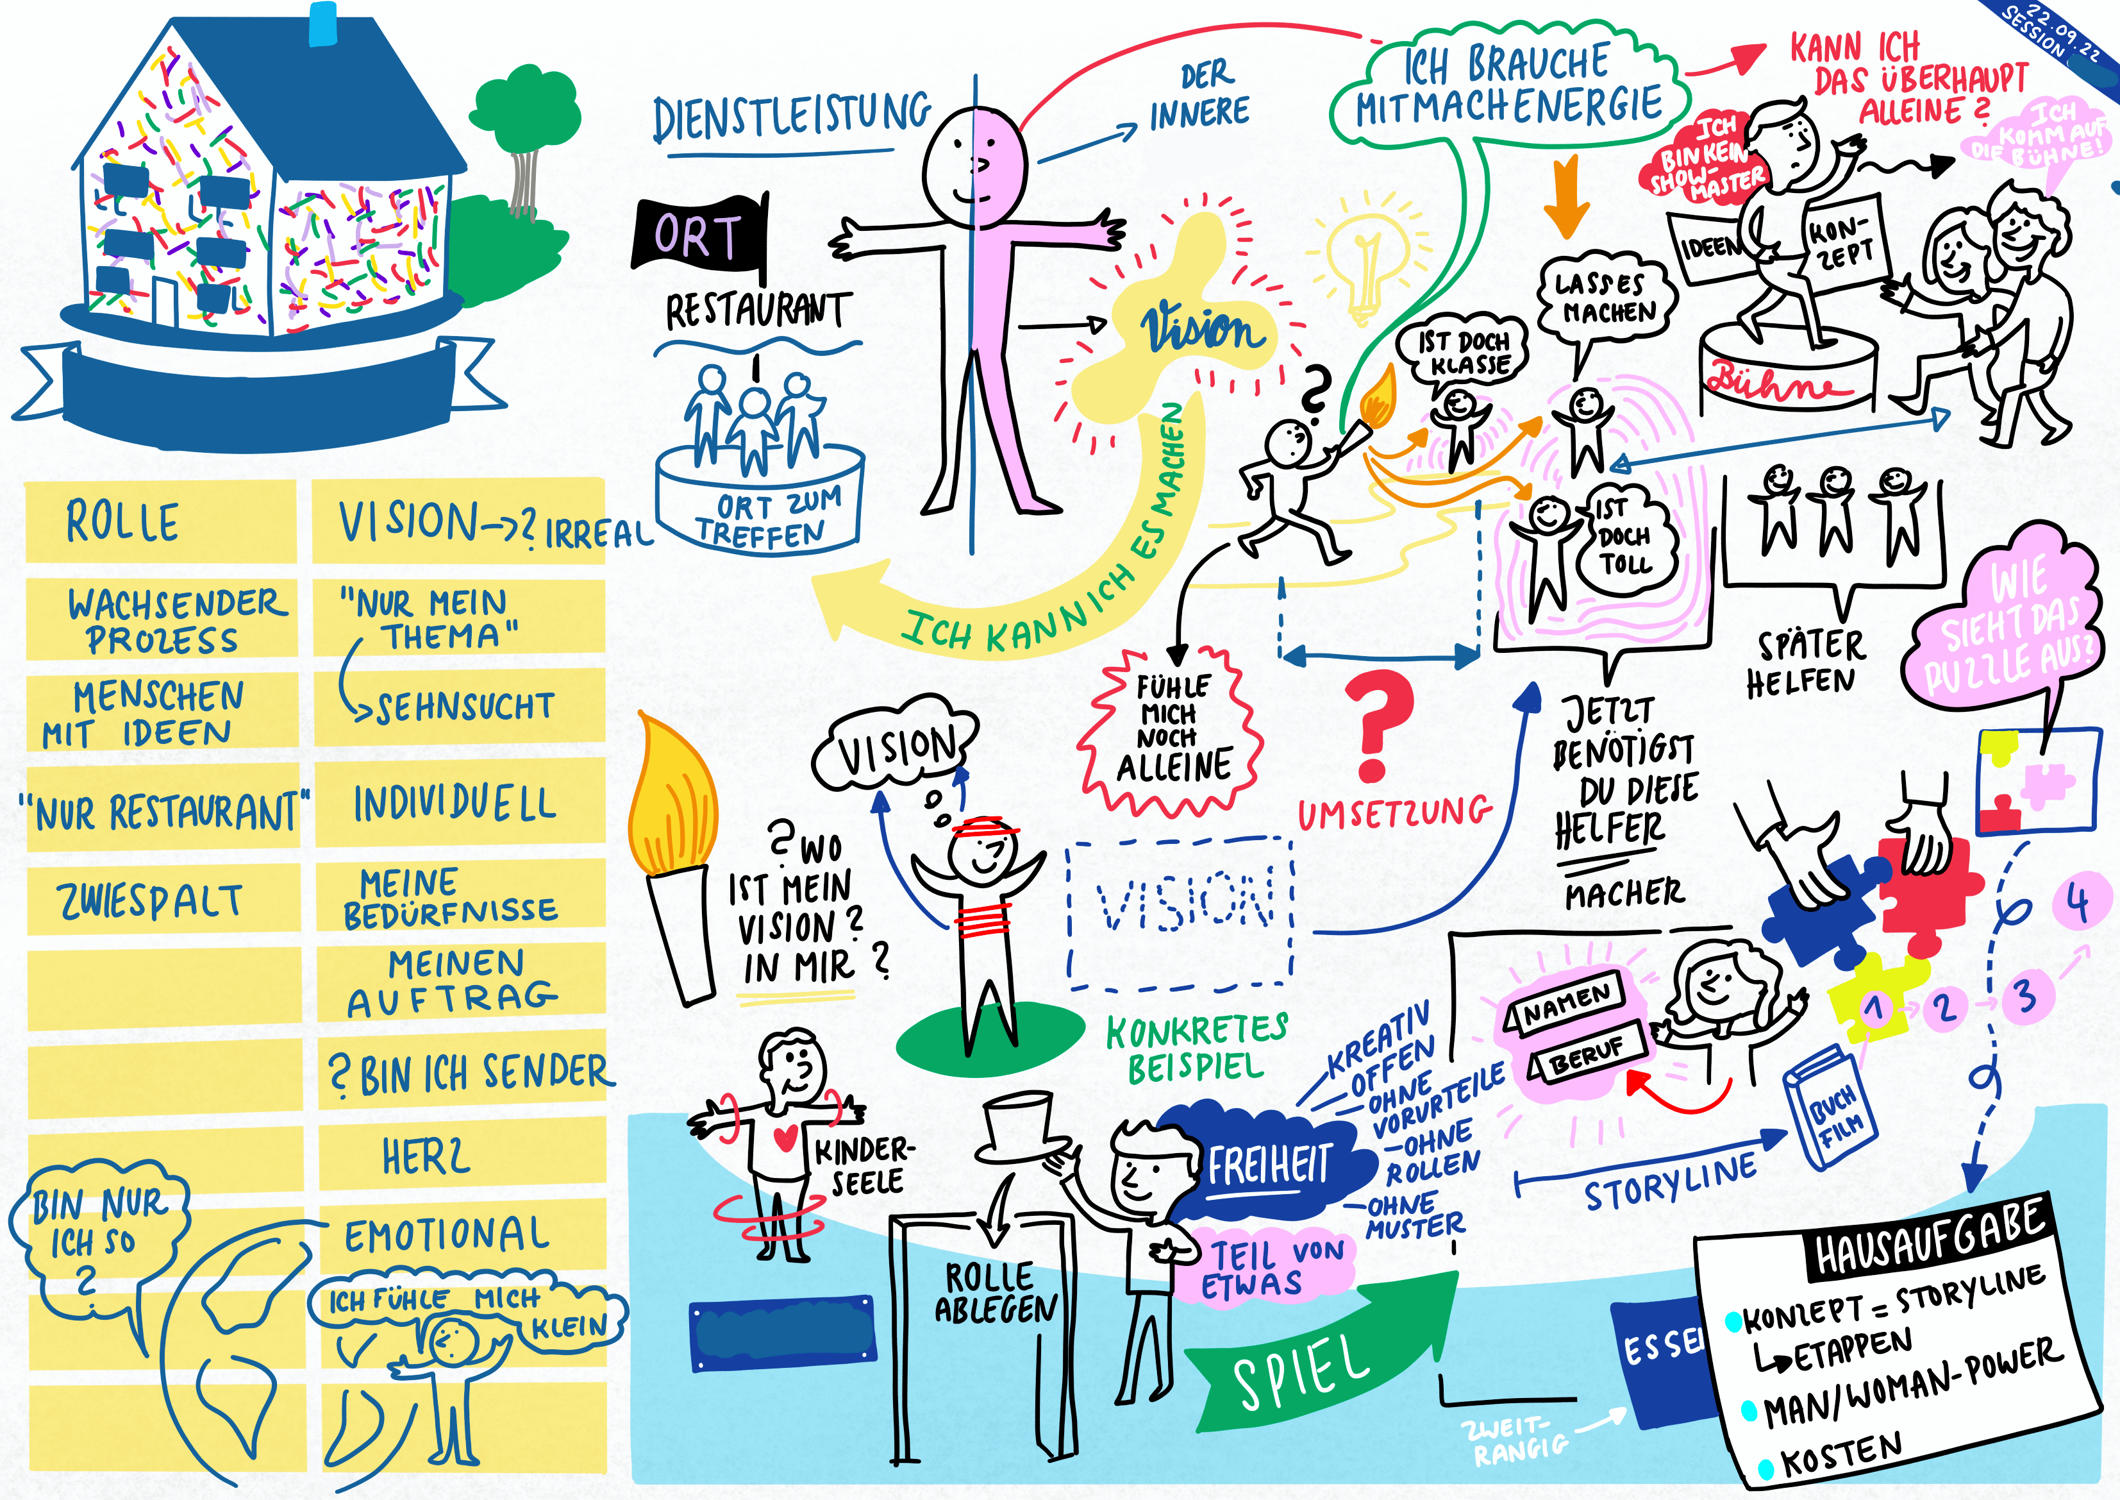 22.09.22
SESSION
DIENSTLEISTUNG
DER
INNERE
ICH BRAUCHE
MITMACHENERGIE
KANN ICH
DAS ÜBERHAUPT
ALLEINE?
ICH
BIN KEIN
SHOW-
MASTER
ICH
KOMM AUF
DIE BÜHNE!
IDEEN
KON-
ZEPT
Bühne
ORT
RESTAURANT
ORT ZUM
TREFFEN
Vision
ICH KANN ICH ES MACHEN
?
IST DOCH
KLASSE
LASS ES
MACHEN
IST
DOCH
TOLL
SPÄTER
HELFEN
WIE
SIEHT DAS
PUZZLE AUS?
JETZT
BENÖTIGST
DU DIESE
HELFER
MACHER
FÜHLE
MICH
NOCH
ALLEINE
?
UMSETZUNG
ROLLE
WACHSENDER
PROZESS
MENSCHEN
MIT IDEEN
"NUR RESTAURANT"
ZWIESPALT
VISION -> ? IRREAL
"NUR MEIN
THEMA"
SEHNSUCHT
INDIVIDUELL
MEINE
BEDÜRFNISSE
MEINEN
AUFTRAG
? BIN ICH SENDER
HERZ
EMOTIONAL
BIN NUR
ICH SO
?
ICH FÜHLE MICH
KLEIN
VISION
? WO
IST MEIN
VISION?
IN MIR ?
VISION
KONKRETES
BEISPIEL
KINDER-
SEELE
ROLLE
ABLEGEN
FREIHEIT
TEIL VON
ETWAS
KREATIV
OFFEN
- OHNE
VORURTEILE
- OHNE
ROLLEN
- OHNE
MUSTER
SPIEL
NAMEN
BERUF
1
2
3
4
BUCH
FILM
STORYLINE
ZWEIT-
RANGIG
ESSE
HAUSAUFGABE
KONZEPT = STORYLINE
ETAPPEN
MAN/WOMAN-POWER
KOSTEN